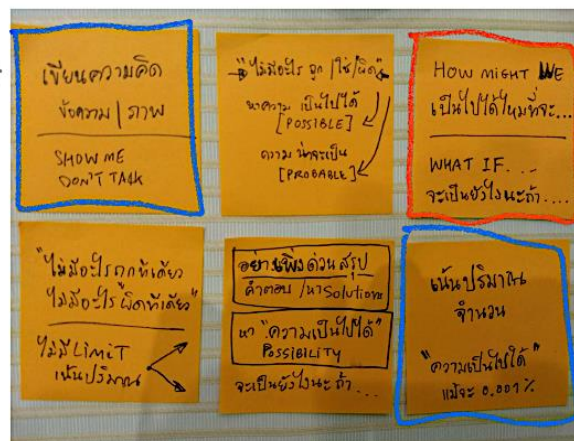 เขียนความคิด
ข้อความ | ภาพ
SHOW ME
DON'T TALK
"ไม่มีอะไร ถูก / ใช่ / ผิด"
หาความ เป็นไปได้
[POSSIBLE]
ความ น่าจะเป็น
[PROBABLE]
HOW MIGHT WE
เป็นไปได้ไหมที่จะ...
WHAT IF...
จะเป็นยังไงนะถ้า....
"ไม่มีอะไรถูกทีเดียว
ไม่มีอะไรผิดทีเดียว"
ไม่มี LIMIT
เน้นปริมาณ
อย่าเพิ่งด่วนสรุป
คำตอบ / หา Solutions
หา "ความเป็นไปได้"
POSSIBILITY
จะเป็นยังไงนะ ถ้า...
เน้นปริมาณ
จำนวน
"ความเป็นไปได้"
แม้จะ 0.001%